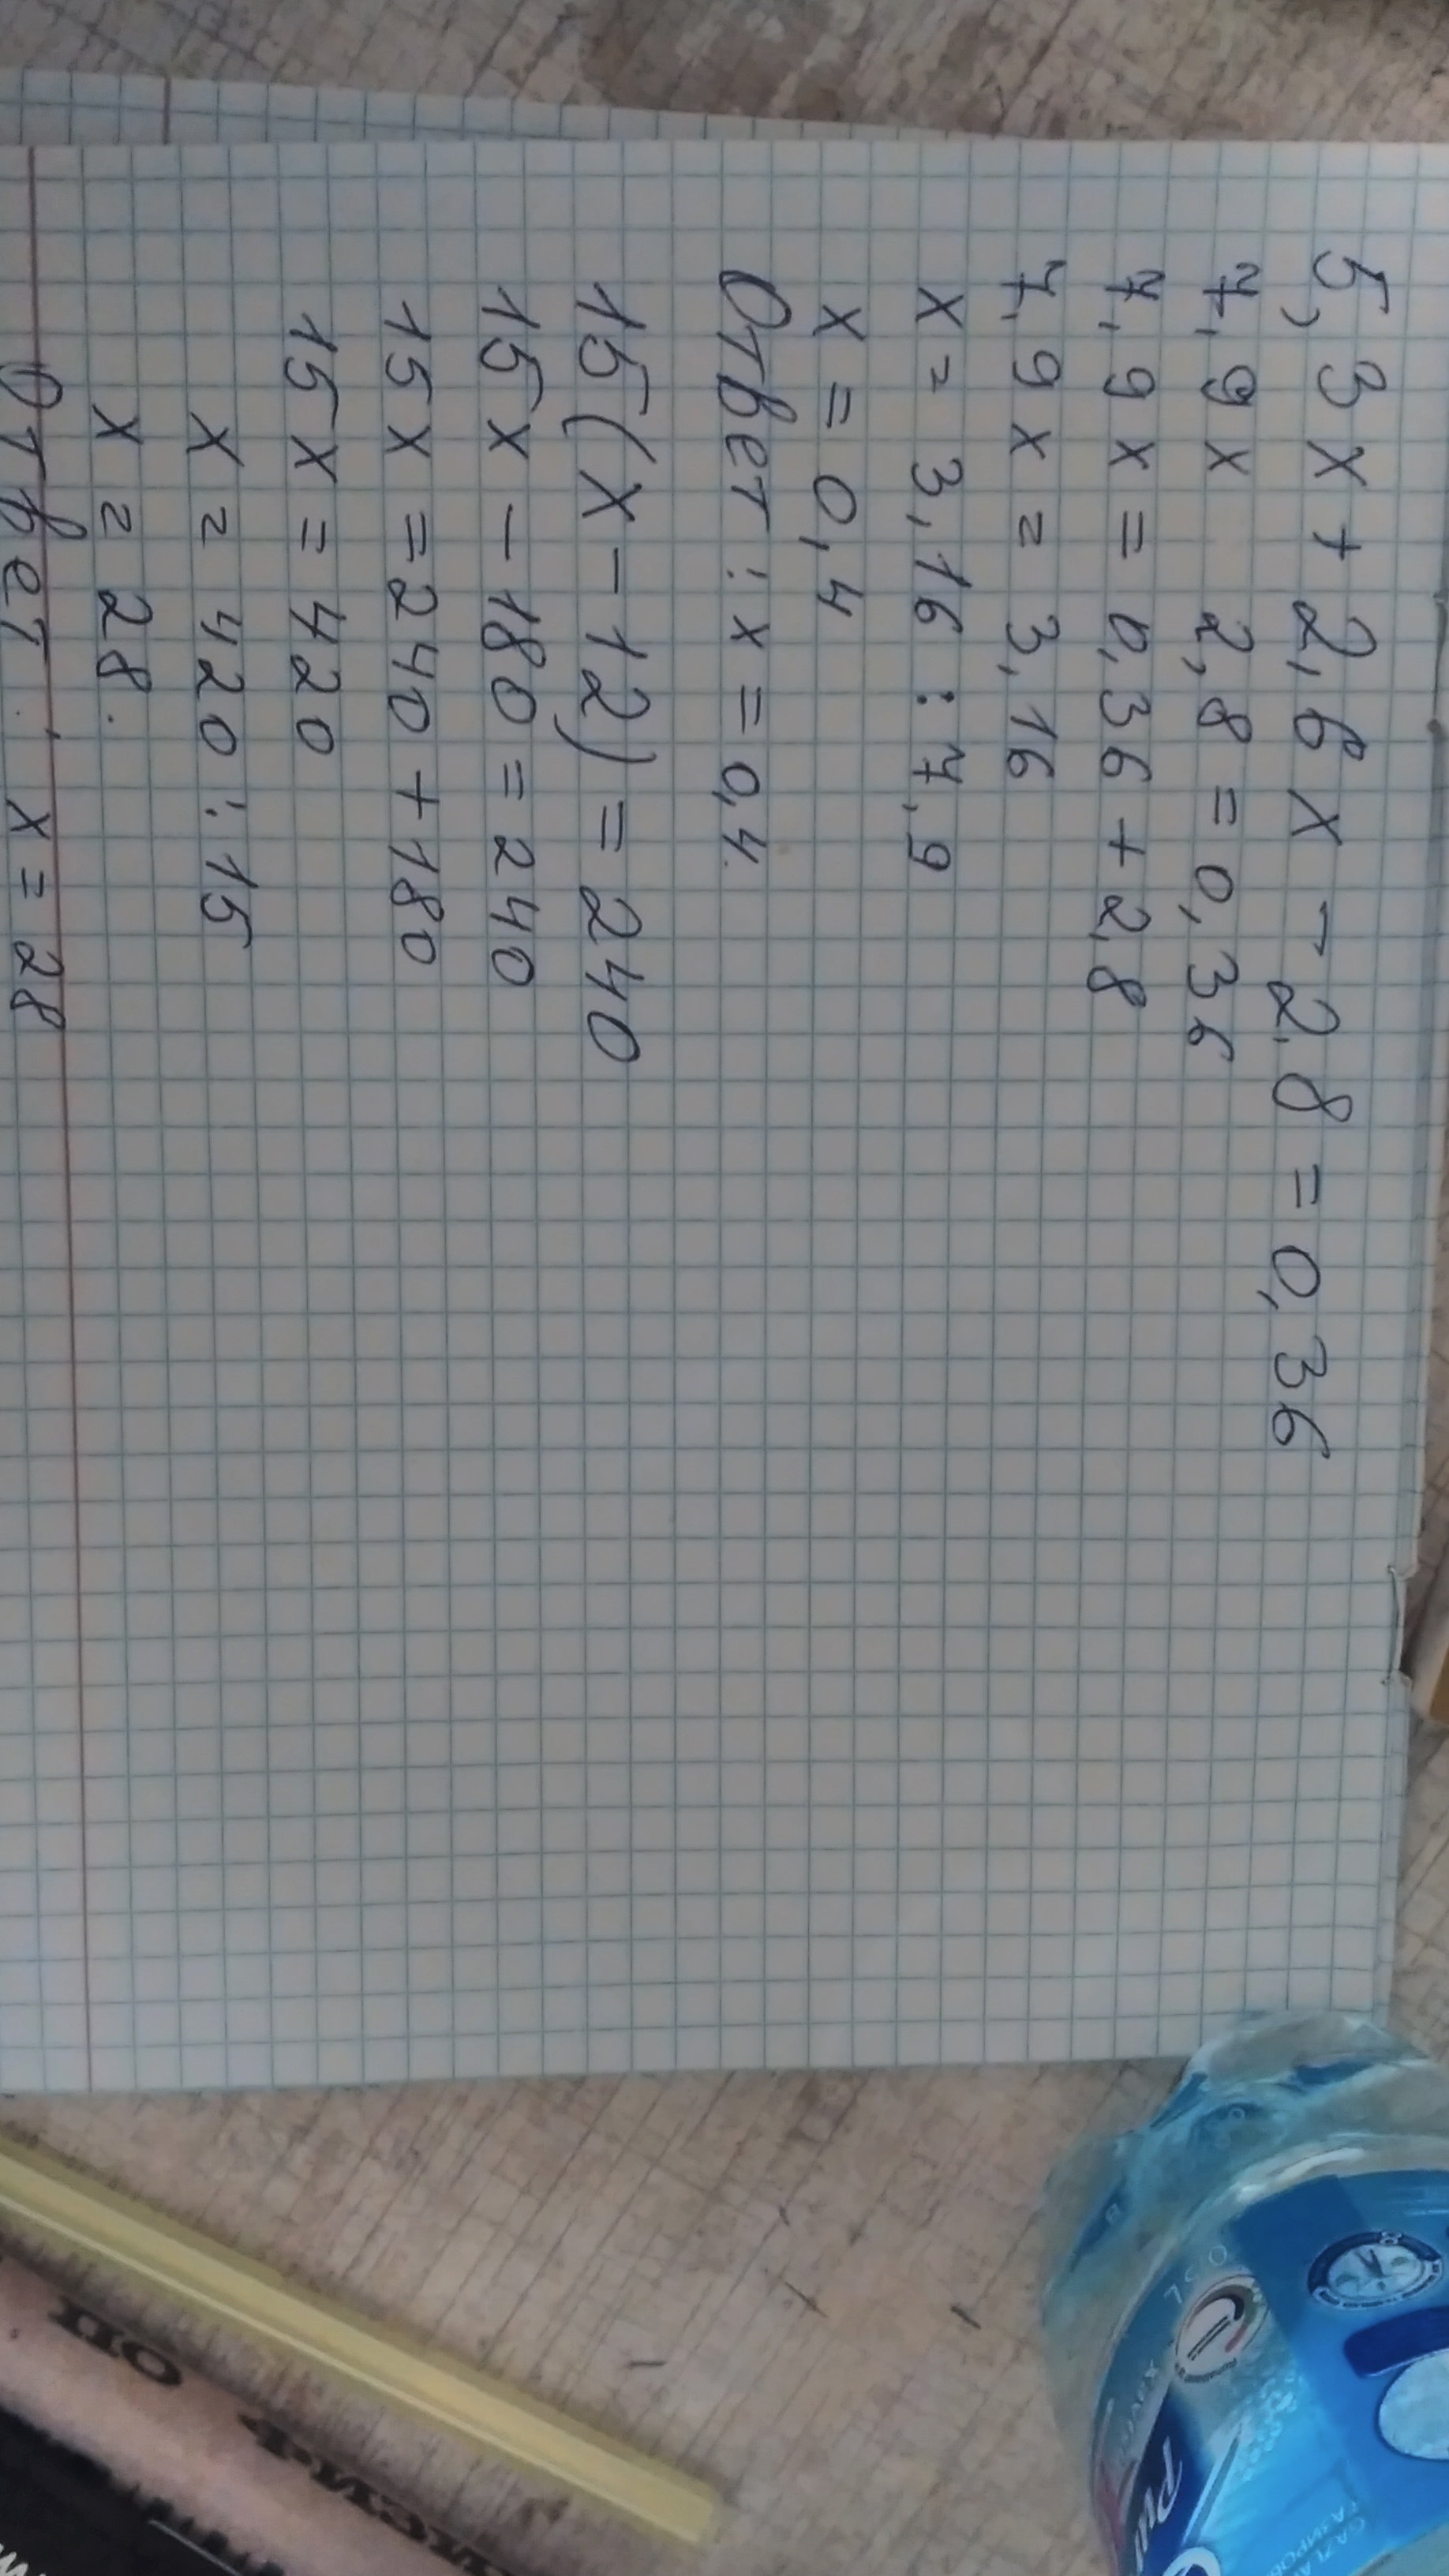 5,3x + 2,6x - 2,8 = 0,36
7,9x 2,8 = 0,36
7,9x = 0,36 + 2,8
7,9x = 3,16
x = 3,16 : 7,9
x = 0,4
Ответ: x = 0,4.
15(x - 12) = 240
15x - 180 = 240
15x = 240 + 180
15x = 420
x = 420 : 15
x = 28.
Ответ: x = 28
0,5L
ПО